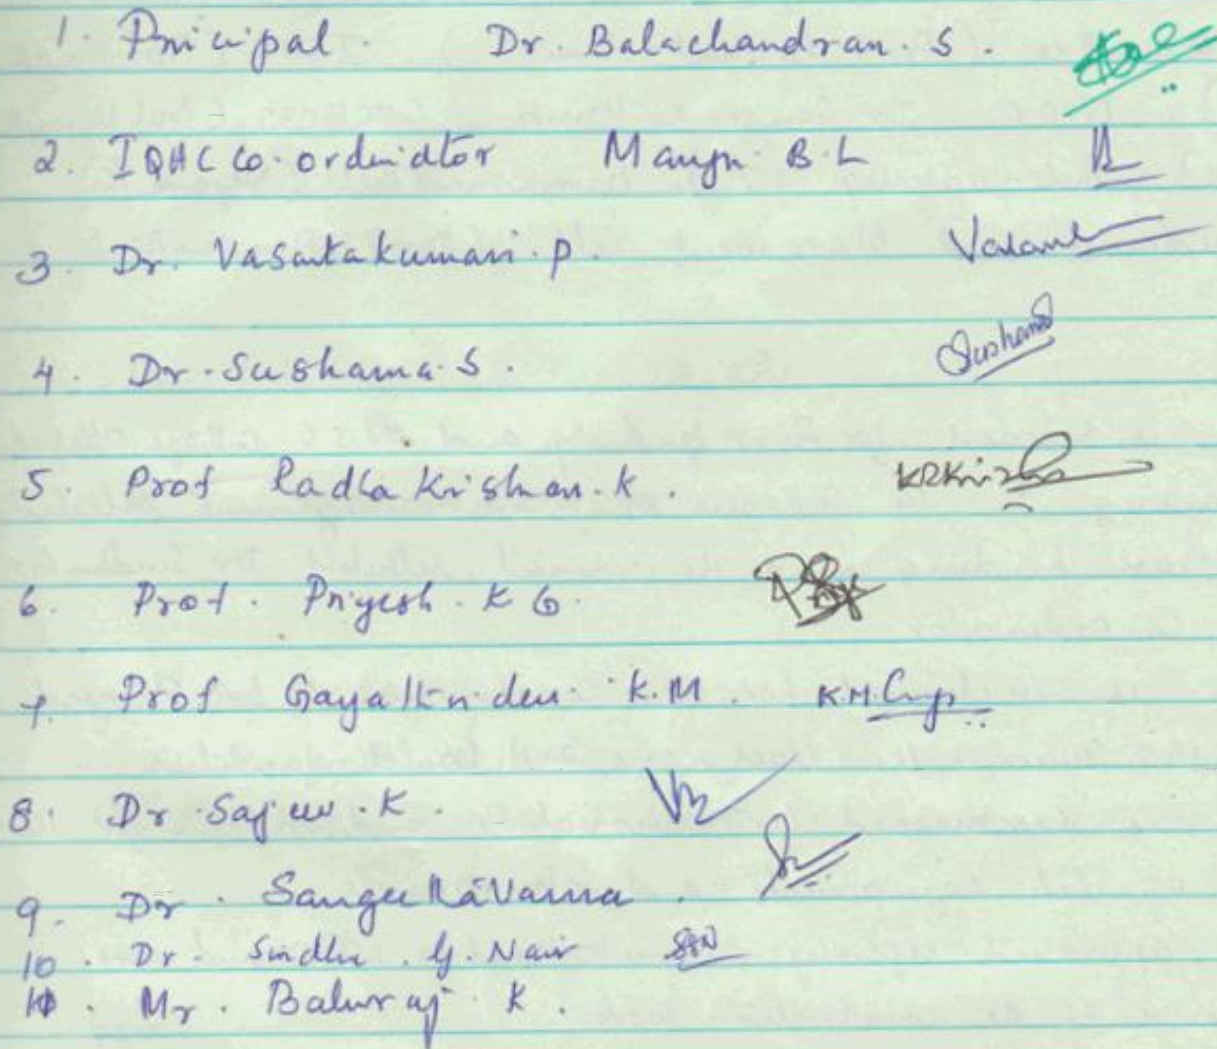 1. Principal. Dr. Balachandran. S.
2. IQAC Co-ordinator Manju B.L
3. Dr. Vasantakumari. P. Vasant
4. Dr. Sushama. S. Sushama
5. Prof Radha Krishnan. K. KRKrish
6. Prof. Priyesh. K G.
7. Prof Gayathri devi. K.M. K.M.
8. Dr. Sajeev. K.
9. Dr. Sangeetha Varma.
10. Dr. Sindhu. G. Nair SGN
11. Mr. Baluraj K.